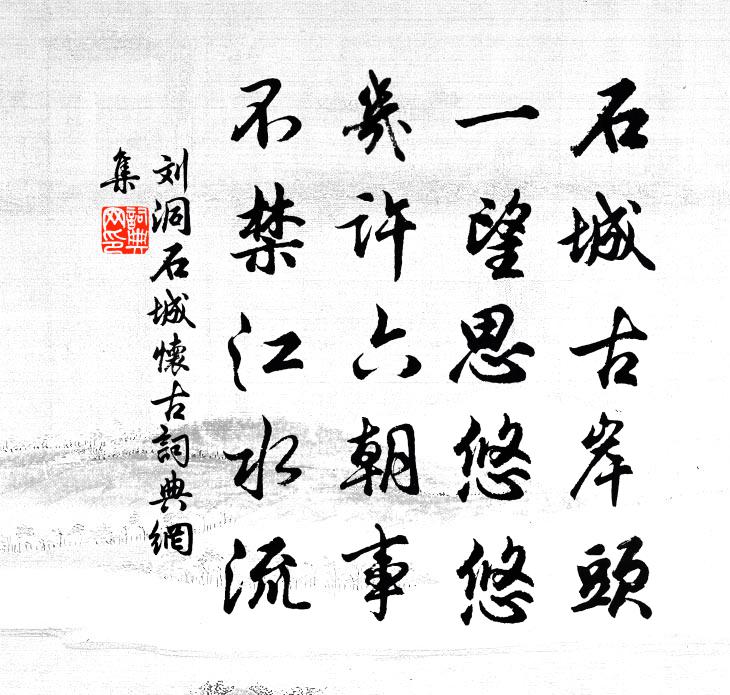 石城古岸頭
一望思悠悠
幾許六朝事
不禁江水流
刘洞石城懷古詞典網
集
詞典
网印